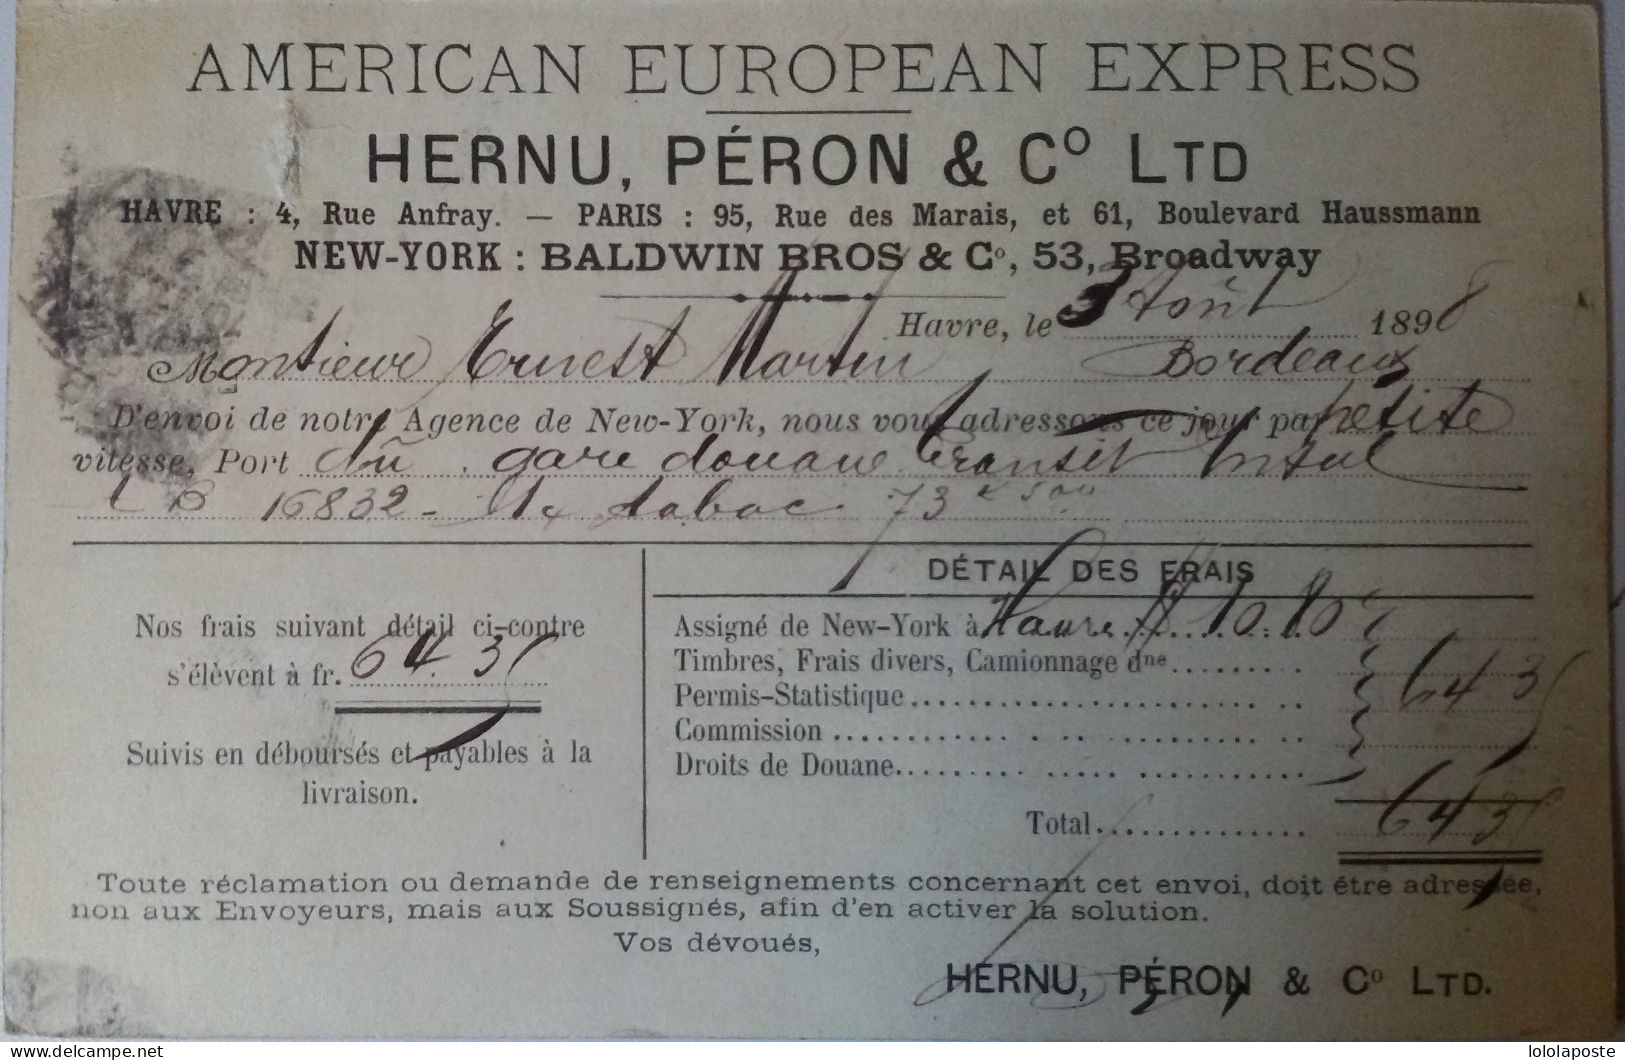 AMERICAN EUROPEAN EXPRESS
HERNU, PÉRON & Cº LTD
HAVRE : 4, Rue Anfray. — PARIS : 95, Rue des Marais, et 61, Boulevard Haussmann
NEW-YORK : BALDWIN BROS & Cº, 53, Broadway
Havre, le 3 Août 1898
Monsieur Ernest Martin Bordeaux
D'envoi de notre Agence de New-York, nous vous adressons ce jour par petite
vitesse, Port dû gare douane transit
L B 16832 - 1 tabac 73 k 500
DÉTAIL DES FRAIS
Nos frais suivant détail ci-contre
s'élèvent à fr. 64.35
Suivis en déboursés et payables à la
livraison.
Assigné de New-York à Havre $ 10.80
Timbres, Frais divers, Camionnage dne
Permis-Statistique 64 35
Commission
Droits de Douane
Total 64 35
Toute réclamation ou demande de renseignements concernant cet envoi, doit être adressée,
non aux Envoyeurs, mais aux Soussignés, afin d'en activer la solution.
Vos dévoués,
HERNU, PÉRON & Cº LTD.
delcampe.net
lololaposte